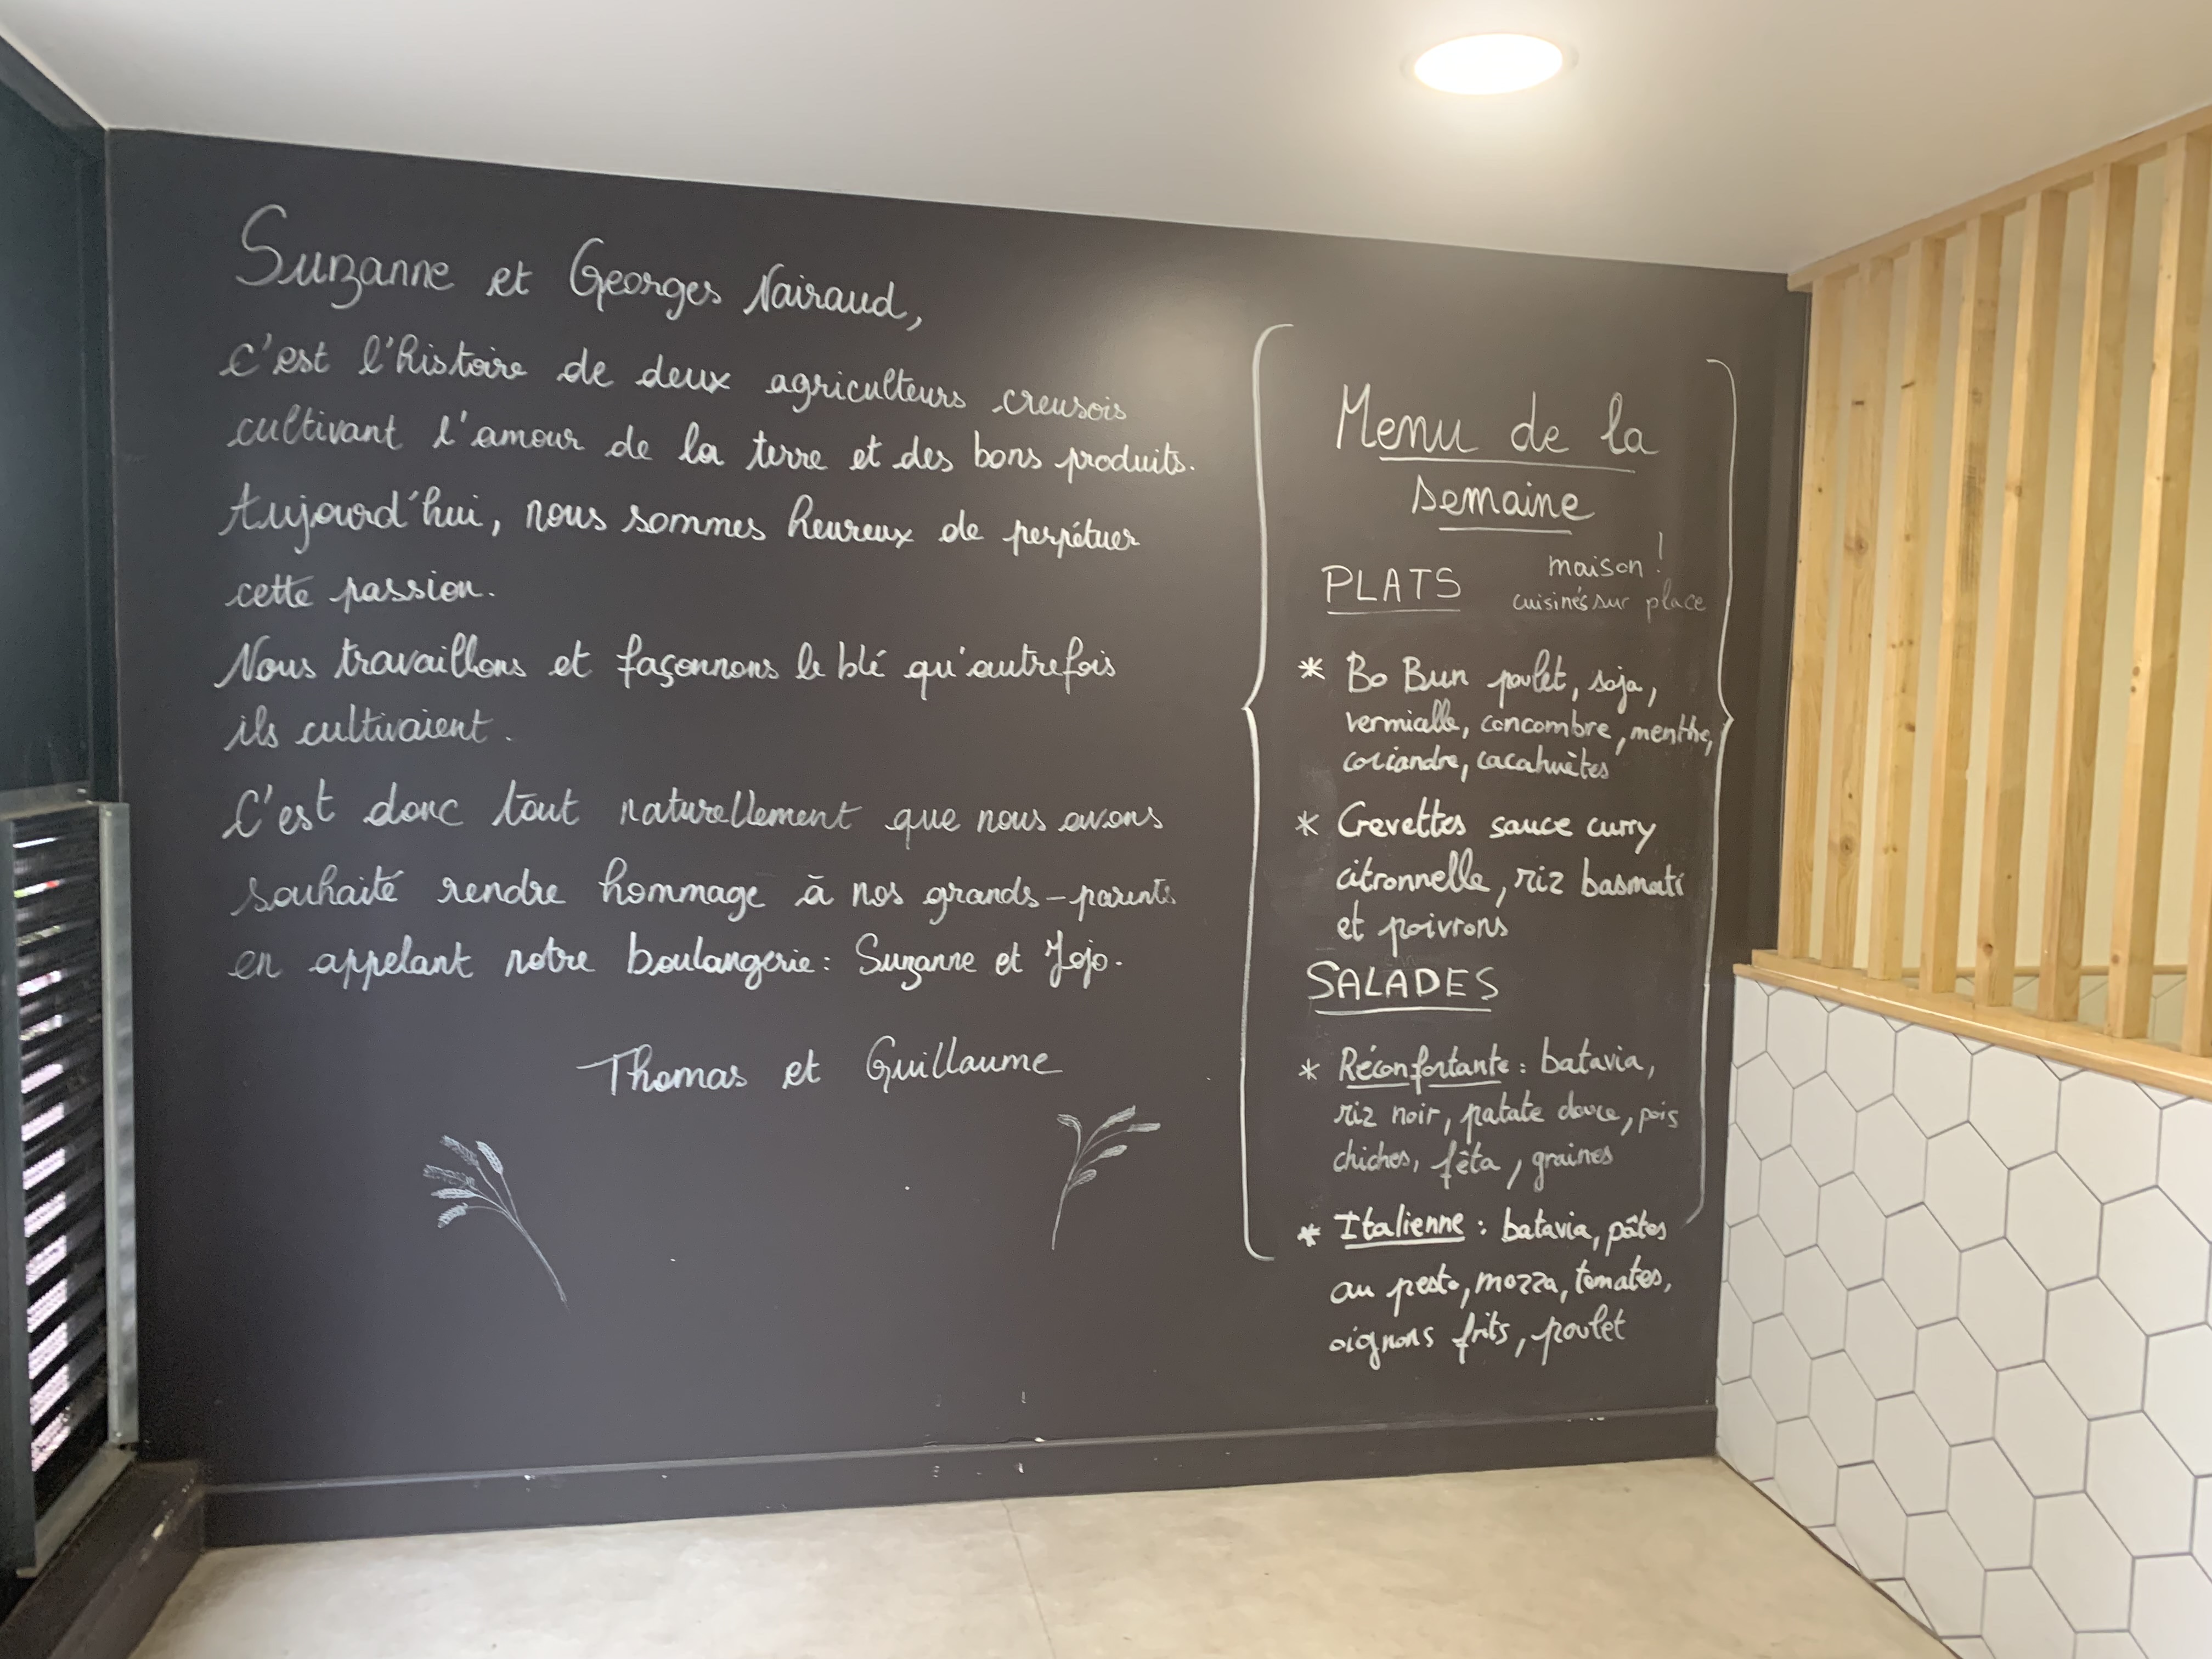 Suzanne et Georges Nairaud,
c'est l'histoire de deux agriculteurs creusois
cultivant l'amour de la terre et des bons produits.
Aujourd'hui, nous sommes heureux de perpétuer
cette passion.
Nous travaillons et façonnons le blé qu'autrefois
ils cultivaient.
C'est donc tout naturellement que nous avons
souhaité rendre hommage à nos grands-parents
en appelant notre boulangerie : Suzanne et Jojo.
Thomas et Guillaume
Menu de la
semaine
PLATS
maison !
cuisinés sur place
* Bo Bun poulet, soja,
vermicelle, concombre, menthe,
coriandre, cacahuètes
* Crevettes sauce curry
citronnelle, riz basmati
et poivrons
SALADES
* Réconfortante : batavia,
riz noir, patate douce, pois
chiches, fêta, graines
* Italienne : batavia, pâtes
au pesto, mozza, tomates,
oignons frits, poulet